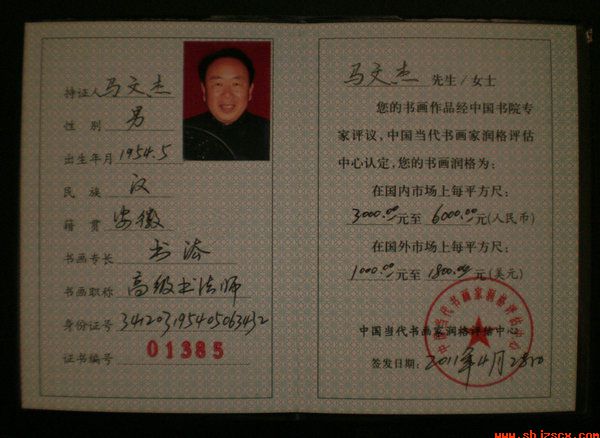 持证人 马文杰
性 别 男
出生年月 1954.5
民 族 汉
籍 贯 安徽
书画专长 书法
书画职称 高级书法师
身份证号 341203195405063432
证书编号 01385
马文杰 先生/女士
您的书画作品经中国书院专
家评议,中国当代书画家润格评估
中心认定,您的书画润格为:
在国内市场上每平方尺:
3000.00元至 6000.00元(人民币)
在国外市场上每平方尺:
1000.00元至 1800.00元(美元)
中国当代书画家润格评估中心
签发日期: 2011年4月28日
中国当代书画家润格评估中心
www.shjzscx.com